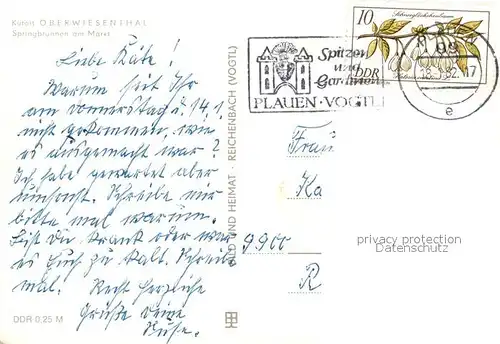 Kurort OBERWIESENTHAL
Springbrunnen am Markt
Liebe Käte!
Warum seid Ihr
am Donnerstag d 14.1.
nicht gekommen, wie
es ausgemacht war?
Ich habe gewartet aber
umsonst. Schreibe mir
bitte mal warum.
Bist Du krank oder war
es Euch zu kalt. Schreib
mal. Recht herzliche
Grüße Deine
DDR 0,25 M
BILD UND HEIMAT · REICHENBACH (VOGTL)
Spitzen
und
Gardinen
PLAUEN · VOGTL
10
DDR
18.1.82.17
e
Frau
Ka
9900
R
privacy protection
Datenschutz